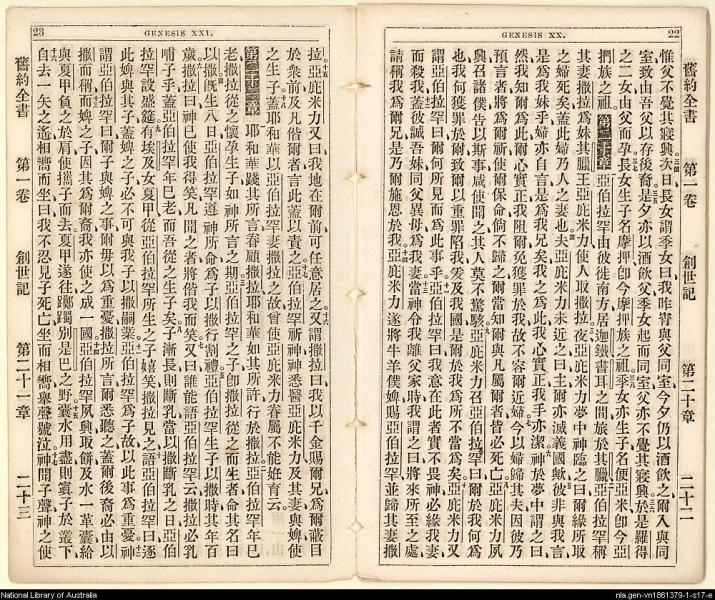 22
GENESIS XX.
舊約全書 第一卷 創世記 第二十章 二十二
惟父不覺其寢興次日長女謂季女曰我昨宵與父同室今夕仍以酒飲之爾入與同
室致由吾父以存後裔是夕亦以酒飲父季女起而同室父亦不覺其寢興於是羅得
之二女由父而孕長女生子名摩押卽今摩押族之祖季女亦生子名便亞米卽今亞
捫族之祖 第二十章 亞伯拉罕由彼徙南方居迦鐵書耳之間旅於其臘亞伯拉罕稱
其妻撒拉爲妹其臘王亞庇米力使人取撒拉夜亞庇米力夢中神臨之曰爾緣所取
之婦死矣蓋此婦乃人之妻也夫亞庇米力未近之曰主爾亦滅義國歟彼非與我言
是爲我妹乎婦亦自言是爲我兄矣我之爲此我心實正我手亦潔神於夢中謂之曰
然我知爾爲此心實正我阻爾免獲罪於我故不容爾近婦今以婦歸其夫因彼乃
預言者將爲爾祈使爾保命倘不歸之爾當知爾與凡屬爾者皆必死亡亞庇米力夙
興召諸僕告以斯事咸使聞之其人莫不驚駭亞庇米力召亞伯拉罕曰爾於我何爲
也我何獲罪於爾致爾以重罪陷我爰及我國是爾於我爲所不當爲矣亞庇米力又
謂亞伯拉罕曰爾何所見而爲此事乎亞伯拉罕曰我意在此者實不畏神必緣我妻
而殺我蓋彼誠吾妹同父異母爲我妻當神令我離父家時我謂之曰將來所至之處
請稱我爲爾兄是乃爾施恩於我亞庇米力遂將牛羊僕婢賜亞伯拉罕並歸其妻撒
23
GENESIS XXI.
拉亞庇米力又曰我地在爾前可任意居之又謂撒拉曰我以千金賜爾兄爲爾蔽目
於衆前及凡偕爾者言此蓋以責之亞伯拉罕祈神神悉醫亞庇米力及其妻與婢使
之生子蓋耶和華以亞伯拉罕妻撒拉之故曾使亞庇米力眷屬不能姙育云
第二十一章 耶和華踐其所言眷顧撒拉耶和華如其所許行於撒拉亞伯拉罕年已
老撒拉從之懷孕生子如神所言之期亞伯拉罕之子卽撒拉從之而生者命其名曰
以撒旣生八日亞伯拉罕遵神所命爲子以撒行割禮亞伯拉罕生子以撒時其年百
歲撒拉曰神已使我得笑凡聞之者將偕我而笑又曰誰能語亞伯拉罕云撒拉必乳
哺子乎蓋亞伯拉罕年已老而吾從之生子矣子漸長則斷乳當以撒斷乳之日亞伯
拉罕設盛筵有埃及女夏甲從亞伯拉罕所生之子嬉笑撒拉見之語亞伯拉罕曰逐
此婢與其子蓋婢之子必不可與我子以撒嗣業亞伯拉罕爲子故以此事爲重憂神
謂亞伯拉罕曰爾子與婢之事爾毋以爲重憂撒拉所言爾悉聽之蓋爾後裔必由以
撒而稱而婢之子因其爲爾裔我亦使之成一國亞伯拉罕夙興取餅及水一革囊給
與夏甲負之於肩使攜子而去夏甲遂往躑躅別是巴之野囊水用盡則寘子於叢下
自去一矢之遙相嚮而坐曰我不忍見子死亡坐而相嚮舉聲號泣神聞子聲神之使
舊約全書 第一卷 創世記 第二十一章 二十三
National Library of Australia
nla.gen-vn1861379-1-s17-e